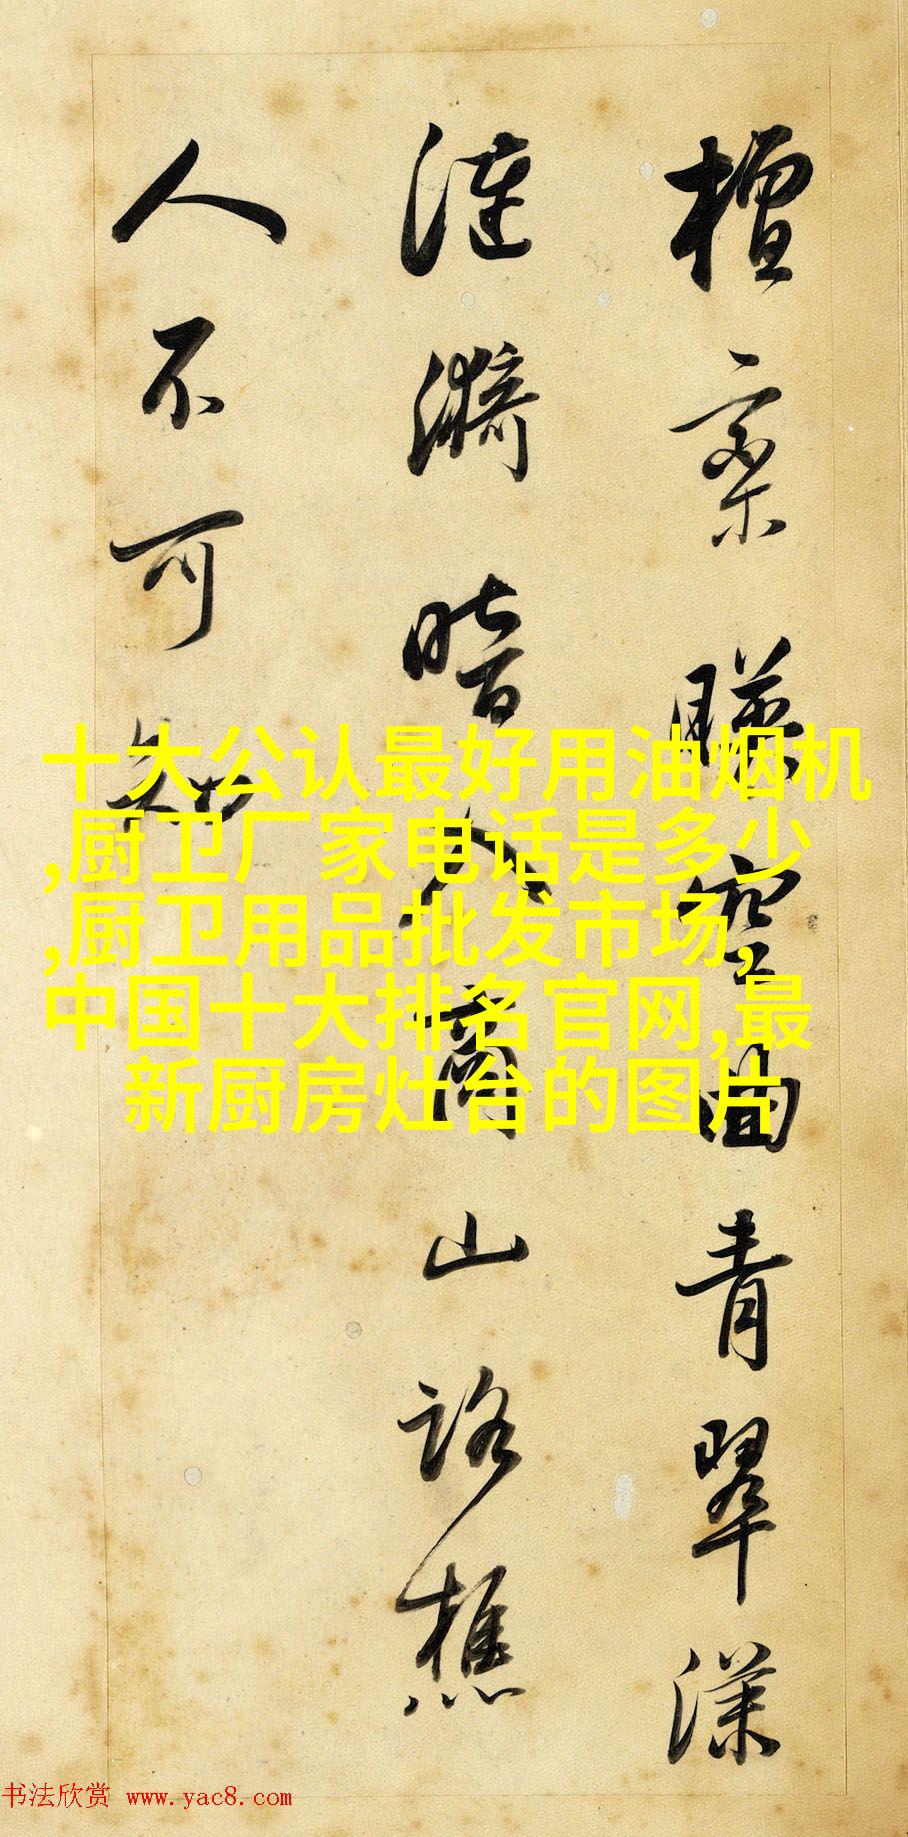 檀栾暎空曲青翠漾
漣漪暗入商山路樵
人不可知
十大公认最好用油烟机
,厨卫厂家电话是多少
,厨卫用品批发市场,
中国十大排名官网,最
新厨房灶台的图片
书法欣赏 www.yac8.com